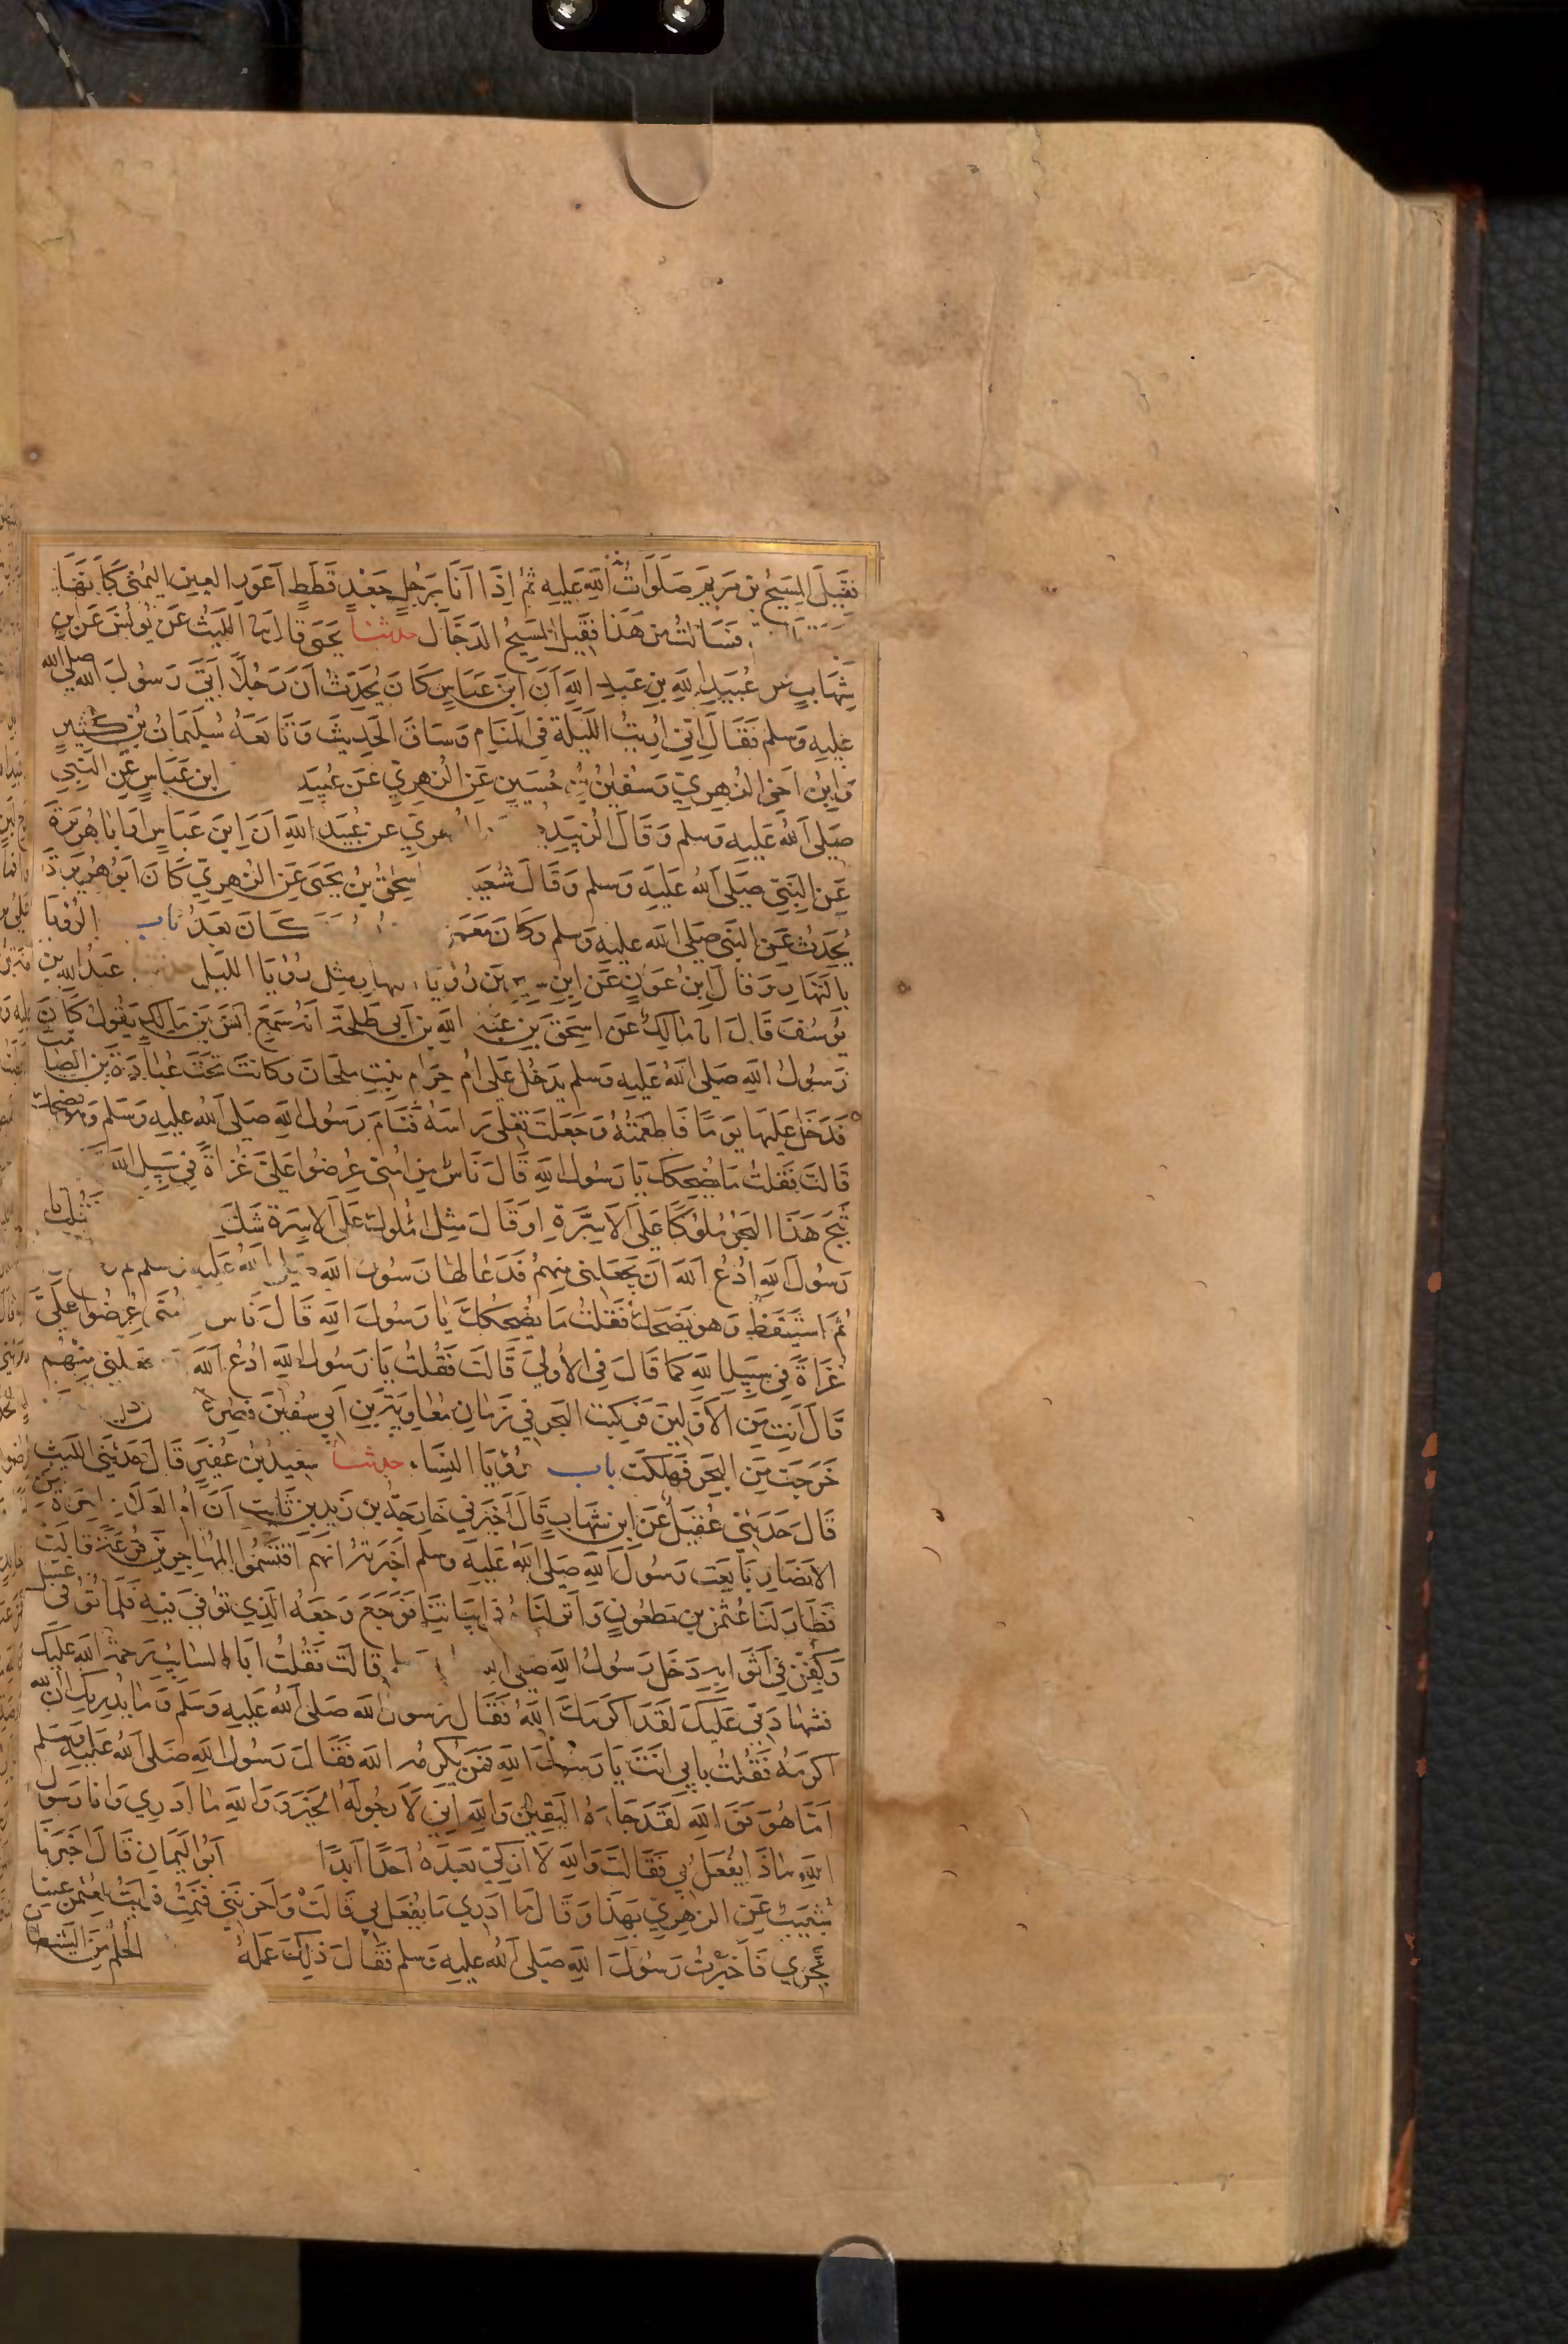 فَقِيلَ المَسِيحُ بن مَريَمَ صَلَوَاتُ اللهِ عَلَيهِ ثُمَّ اِذَا اَنَا بِرَجُلٍ جَعْدٍ قَطَطٍ اَعوَرِ العينِ اليُمْنى كَاَنَّهَا
فَسَاَلتُ من هَذَا فَقِيلَ المَسِيحُ الدَجَّال حدثنا يَحيَى قالَ ثنا اللَّيثُ عَن يُونُسَ عَن ابنِ
شِهَابٍ عَن عُبَيدِ اللهِ بنِ عَبدِ اللهِ اَنَّ ابنَ عَبَاسٍ كَانَ يُحَدِّثُ اَنَّ رَجُلًا اَتَى رَسُولَ الله صلى الله
عَلَيهِ وَسلم فَقَالَ اِنّي اُرِيتُ اللَّيلَةَ فِي المَنَامِ وَسَاقَ الحَدِيثَ وَتَابَعَهُ سُلَيمَانُ بنُ كَثِيرٍ
وَابنُ اَخِي الزُهرِيّ وَسُفيٰنُ بنُ حُسَينٍ عَنِ الزُهرِيِّ عَن عُبَيدِ ابن عَبَاسٍ عَنِ النَّبِي
صَلَى اللهُ عَلَيهِ وَسلم وَقَالَ الزُبَيدِ هرِيّ عن عُبَيدِ اللهِ اَنَّ ابنَ عَبَاسٍ اَو اَبَا هُرَيرَةَ
عَنِ النَّبِيّ صَلَى اللهُ عَلَيهِ وَسلم وَقَالَ شُعَيب سحٰقُ بنُ يَحيَى عَنِ الزُهرِيّ كَانَ اَبو هُرَيرَةَ
يُحَدِّثُ عَنِ النَّبي صَلَى الله عليهِ وَسلم وَكَانَ مَعمَر كَانَ بَعدُ باب الرُؤيَا
بِالنَّهَارِ وَقَالَ ابنُ عَونٍ عَنِ ابنِ سيرين رُؤيَا النهارِ مِثل رُؤيَا الليل حدثنا عَبدُ اللهِ بن
يُوسُفَ قَالَ انا مٰالِكٌ عَن اسحٰقَ بنِ عَبدِ اللهِ بنِ اَبي طَلحَةَ انهُ سَمِعَ اَنَسَ بنَ مَالِكٍ يَقُولُ كَانَ
رَسُولُ اللهِ صَلى اللهُ عَلَيهِ وَسلم يَدخُلُ عَلَى اُم حَرَامٍ بنتِ مِلحَانَ وَكَانَت تَحتَ عُبَادَةَ بن الصَّامت
فَدَخَلَ عَلَيهَا يَومًا فَاَطعَمَتهُ وَجَعَلَت تَفلِي رَاسَهُ فَنَامَ رَسُولُ اللهِ صَلى اللهُ عَليهِ وَسَلم
قَالَت فَقُلتُ مَا يُضحِكُكَ يَا رَسُولَ اللهِ قَالَ نَاسٌ مِن اُمّتي عُرِضُوا عَلَيَّ غُزَاةً فِي سَبِيلِ اللهِ
ثَبَجَ هَذَا البَحرِ مُلُوكًا عَلَى الاَسِرَّةِ اوقَالَ مِثلَ المُلُوكِ عَلَى الاَسِرَّةِ شَكَّ
رَسُولَ اللهِ ادعُ اللهَ اَن يَجعَلَنِي مِنهُم فَدَعَا لهَا رَسُولُ اللهِ صَلى اللهُ عَليهِ وسلم
ثُمَ استَيقَظَ وَهو يَضحَكُ فَقُلتُ مَا يُضحِكُكَ يَا رَسُولَ اللهِ قَالَ نَاس عُرِضُوا عَلَيَّ
غُزَاةً فِي سَبِيلِ اللهِ كَمَا قَالَ فِي الاُولَى قَالَت فَقُلتُ يَا رَسُولَ اللهِ ادعُ اللهَ يجعلني مِنهُم
قَالَ اَنتِ مِنَ الاَوَّلِينَ فَرَكِبَت البَحرَ فِي زَمٰانِ مُعَاوِيَةَ بنِ اَبي سُفيٰنَ فصُرِعَت
خَرَجَت مِنَ البَحرِ فَهَلَكَت باب رُؤيَا النِسَاءِ حدثنا سَعِيدُ بنُ عُفَيرٍ قَالَ حَدَّثَنِي اللَيث
قالَ حَدَثَنِي عُقَيلٌ عَنِ ابنِ شِهَابٍ قَالَ اَخبَرَني خَارِجَةُ بن زَيدِ بنِ ثَابِتٍ اَنَّ اُم العَلَاءِ امرَاَةً من
الاَنصَارِ بَايَعَت رَسُولَ اللهِ صَلَى اللهُ عَليهِ وسلم اَخبَرَتهُ انهُم اقتَسَمُوا المُهَاجِرِينَ قُرعَةً قالَت
فَطَارَ لَنَا عُثمٰنُ بن مَظعُونٍ وَاَنزَلنَاهُ في اَبيَاتِنَا فَوَجَعَ وَجعَهُ الَّذِي تُوُفّيَ فِيهِ فَلَمَّا تُوُفّي غُسِّلَ
وَكُفِّنَ فِي اَثوَابِهِ دَخَلَ رَسُولُ اللهِ صَلى اللهُ قالَت فَقُلتُ اَبَا السَّائِبِ رَحمَةُ اللهِ عَلَيكَ
فشَهَادَتِي عَلَيكَ لَقَد اَكرَمَكَ اللهُ فَقَالَ رَسولُ اللهِ صَلى اللهُ عَليهِ وَسَلم وَمَا يُدرِيكِ اَنَّ اللهَ
اَكرَمَهُ فَقُلتُ بِاَبي اَنتَ يَا رَسُولَ اللهِ فَمَن يُكرِمُهُ اللهُ فَقَالَ رَسُولُ اللهِ صَلى اللهُ عَليهِ وَسَلم
اَمّا هُوَ فَوَ اللهِ لَقَد جَاءَهُ اليَقِينُ وَاللهِ اِنّي لَاَرجُو لَهُ الخَيرَ وَوَاللهِ مَا اَدرِي وَاَنَا رَسُولُ
اللهِ مَاذَا يُفعَلُ بِي فَقَالَت وَاللهِ لَا اُزَكّي بَعدَهُ اَحَدًا اَبَدًا اَبُو اليَمَانِ قَالَ اَخبَرَنَا
شُعَيبٌ عَنِ الزهرِيّ بِهَذَا وَقَالَ مَا اَدرِي مَا يُفعَلُ بِي قَالَت وَاَحزَنَنِي فَنِمتُ فَرَاَيتُ لِعُثمٰنَ عَينًا
تَجرِي فَاَخبَرتُ رَسُولَ اللهِ صَلى اللهُ عليهِ وَسلم فَقَالَ ذٰلِكَ عَمَلُهُ الحُلمُ مِنَ الشَيطَانِ